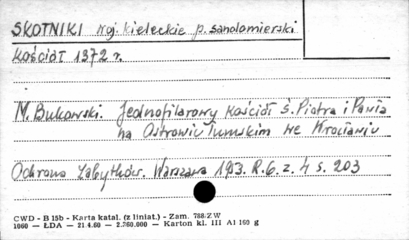 SKOTNIKI woj. kieleckie p. sandomierski
Kościół 1372 r.
M. Bukowski. Jednofilarowy kościół ś. Piotra i Pawła
na Ostrowiu Tumskim we Wrocławiu
Ochrona Zabytków. Warszawa 1953. R. 6. z. 4 s. 203
CWD - B 15b - Karta katal. (z liniat.) - Zam. 788/ZW
1860 — ŁDA — 21.4.60 — 2.760.000 — Karton kl. III A1 160 g